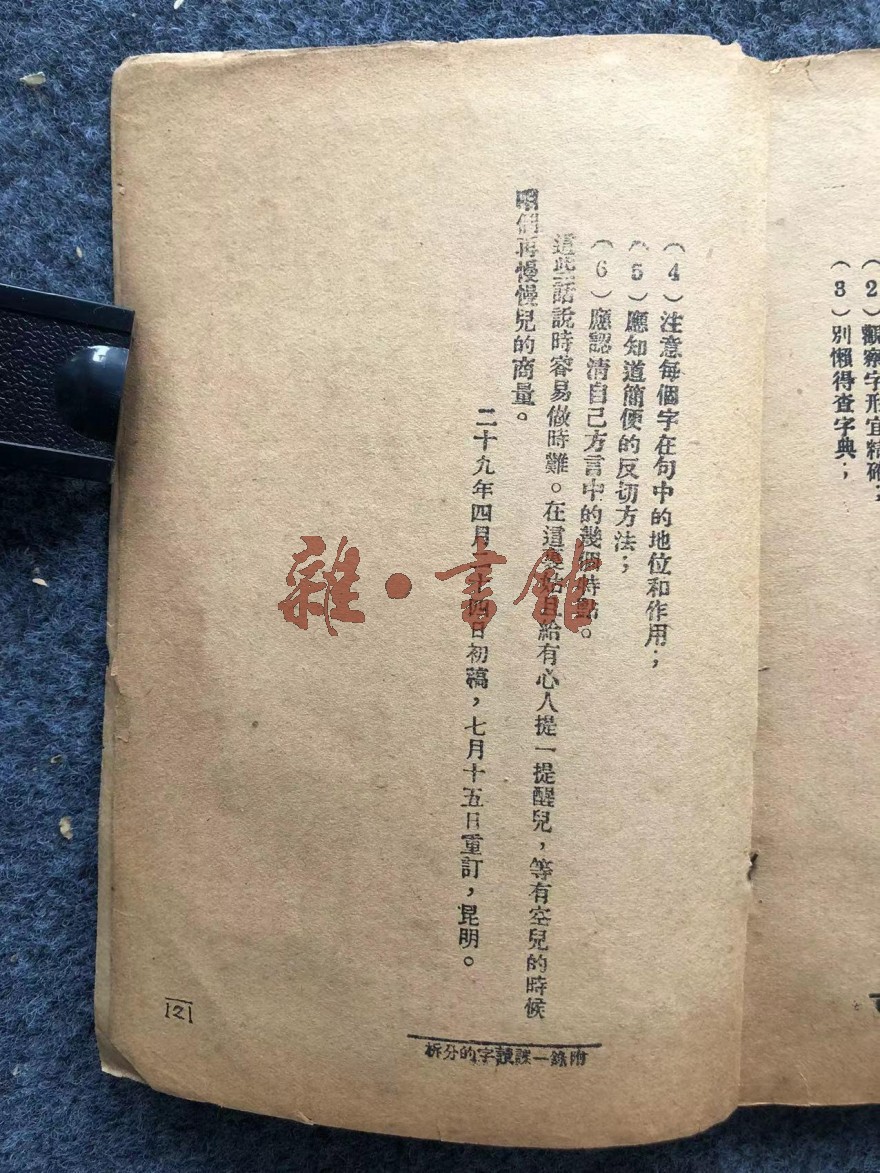 (2)觀察字形宜精確；
(3)別懶得查字典；
(4)注意每個字在句中的地位和作用；
(5)應知道簡便的反切方法；
(6)應認清自己方言中的幾個特點。
這些話說時容易做時難。在這裏姑且給有心人提一提醒兒，等有空兒的時候
咱們再慢慢兒的商量。
二十九年四月二十四日初稿，七月十五日重訂，昆明。
121
附錄一 誤讀字的分析
雜·書館